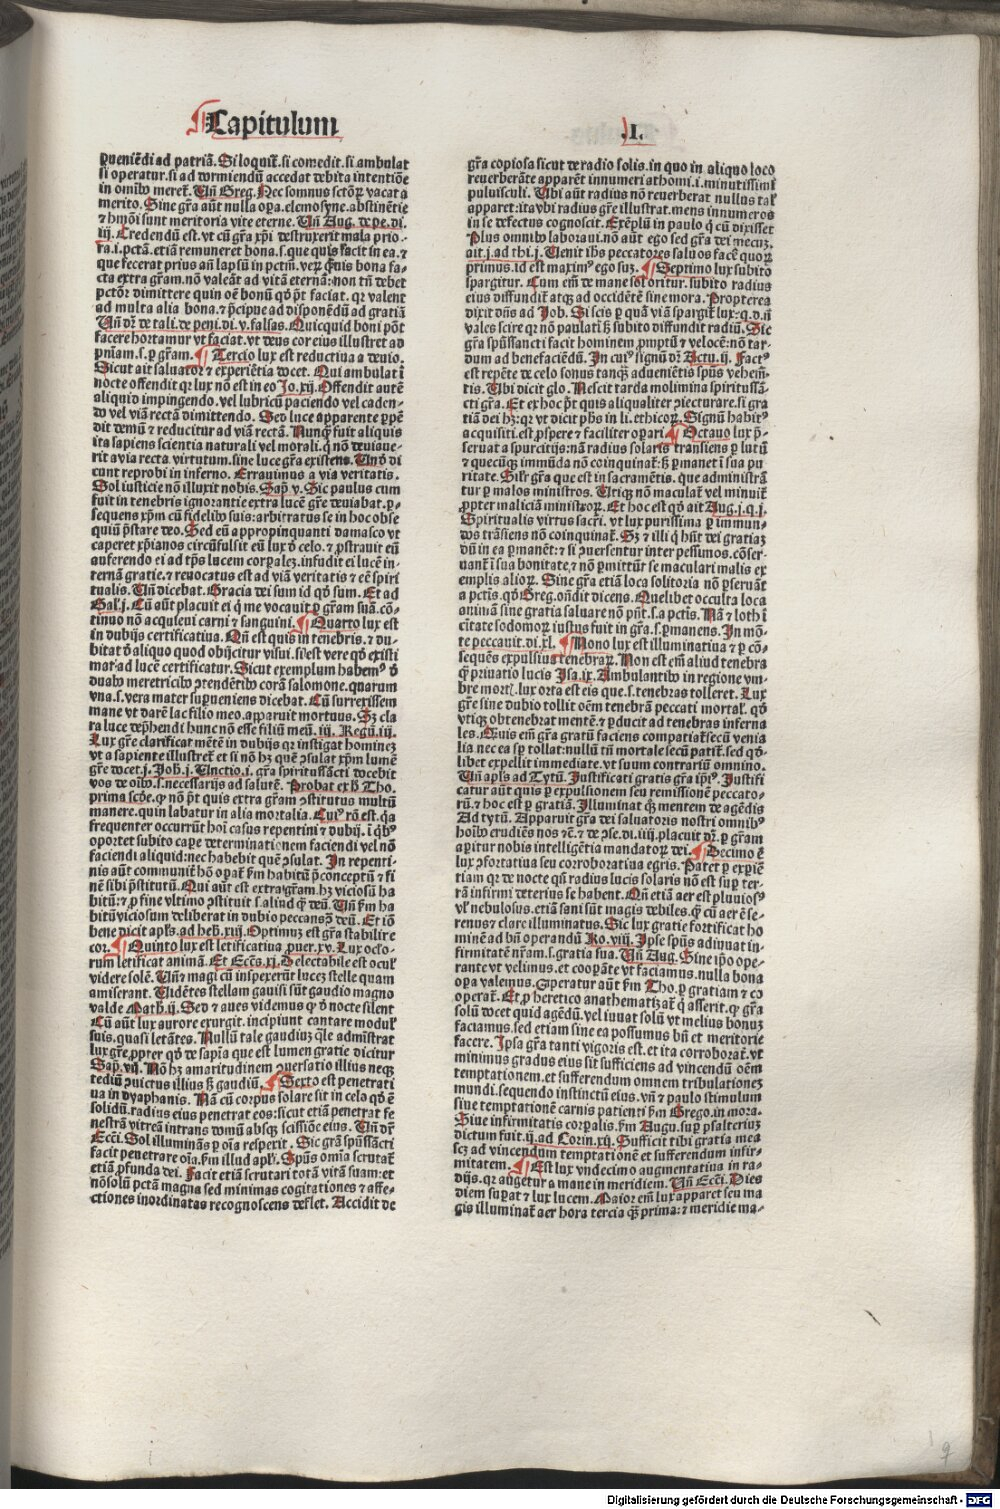 Capitulum
.I.
pueniēdi ad patriā. Si loquit᷑. si comedit. si ambulat
si operatur. si ad dormiendū accedat debita intentiōe
in omībꝰ meret᷑. Uñ Greg. Nec somnus sctōꝝ vacat a
merito. Sine gr̄a aūt nulla oꝑa. elemosyne. abstinētie
⁊ hmōi sunt meritoria vite eterne. Uñ Aug. de pe. di.
iij. Credendū est. vt cū gr̄a xp̄i destruxerit mala prio-
ra. i. pctā. etiā remuneret bona. s. que quis facit in ea. ⁊
que fecerat prius añ lapsū in pctm̄. veꝝ q̄uis bona fa-
cta extra gr̄am. nō valeāt ad vitā eternā: non tn̄ debet
pctōr dimittere quin oē bonū qd̓ pōt faciat. qr valent
ad multa alia bona. ⁊ p̄cipue ad disponēdū ad gratiā
Uñ dr̄ de tali. de peni. di. v. falsas. Quicquid boni pōt
facere hortamur vt faciat. vt deus cor eius illustret ad
pn̄iam. s. ꝑ gr̄am. ¶ Tercio lux est reductiua a deuio.
Sicut ait saluator ⁊ experiētia docet. Qui ambulat ī
nocte offendit qr lux nō est in eo Jo. xij. Offendit autē
aliquid impingendo. vel lubricū paciendo vel caden-
do vel viā rectā dimittendo. Sed luce apparente ꝑpē
dit demū ⁊ reducitur ad viā rectā. Nunq̄ fuit aliquis
ita sapiens scientia naturali vel morali. q̇ nō deuiaue-
rit a via recta virtutum. sine luce gr̄e existens. Uñ di
cunt reprobi in inferno. Errauimus a via veritatis.
Sol iusticie nō illuxit nobis. Sap̄. v. Sic paulus cum
fuit in tenebris ignorantie extra lucē gr̄e deuiabat. ꝑ-
sequens xp̄m cū fidelibꝰ suis: arbitratus se in hoc obse
quiū p̄stare deo. Sed eū appropinquanti damasco vt
caperet xp̄ianos circūfulsit eū lux d̓ celo. ⁊ ꝓstrauit eū
auferendo ei ad tp̄s lucem corꝑalez. infudit ei lucē in-
ternā gratie. ⁊ reuocatus est ad viā veritatis ⁊ eē spiri
tualis. Uñ dicebat. Gracia dei sum id qd̓ sum. Et ad
Gal̓. j. Cū aūt placuit ei q̇ me vocauit ꝑ gr̄am suā. cō-
tinuo nō acquieui carni ⁊ sanguini. ¶ Quarto lux est
in dubijs certificatiua. Qn̄ est quis in tenebris. ⁊ du-
bitat d̓ aliquo quod obijcitur visui. si est vere qd̓ existi
mat: ad lucē certificatur. Sicut exemplum habemꝰ d̓
duabꝰ meretricibꝰ ↄtendētibꝰ corā salomone. quarum
vna. s. vera mater suꝑueniens dicebat. Cū surrexissem
mane vt darē lac filio meo. apparuit mortuus. Sz cla
ra luce dep̄hendi hunc nō esse filiū meū. iij. Regū. iij.
Lux gr̄e clarificat mētē in dubijs qr instigat hominez
vt a sapiente illustret᷑ ⁊ si nō hz quē ↄsulat xp̄m lumē
gr̄e docet. j. Joh̄. j. Unctio. i. gr̄a spiritussācti docebit
vos de oībꝰ. s. necessarijs ad salutē. Probat ex b̓ Tho.
prima scd̓e. ꝙ nō pōt quis extra gr̄am ↄstitutus multū
manere. quin labatur in alia mortalia. Cuiꝰ rō est. qa
frequenter occurrūt hoī casus repentini ⁊ dubij. ī qbꝰ
oportet subito caꝑe determinationem faciendi vel nō
faciendi aliquid: nec habebit quē ↄsulat. In repenti-
nis aūt communit᷑ hō oꝑat᷑ ẜm habitū p̄conceptū ⁊ fi
nē sibi p̄stitutū. Qui aūt est extra gr̄am. hz viciosū ha
bitū: ⁊ ꝓ fine vltimo ↄstituit. s. aliud q̄ deū. Uñ ẜm ha
bitū viciosum deliberat in dubio peccans ↄ deū. Et iō
bene dicit apl̓s. ad heb̓. xiij. Optimuz est gr̄a stabilire
cor. ¶ Quinto lux est letificatiua ꝓuer. xv. Lux oclo-
rum letificat animā. Et Ecc̄s. xi. Delectabile est ocul̓
videre solē. Uñ ⁊ magi cū inspexerūt lucez stelle quam
amiserant. Uidētes stellam gauisi sūt gaudio magno
valde Math̄. ij. Sed ⁊ aues videmus q̇ d̓ nocte silent
Cū aūt lux aurore exurgit. incipiunt cantare modul̓
suis. quasi letātes. Nullū tale gaudiuz q̄le admīstrat
lux gr̄e. ꝓpter qd̓ de sapīa que est lumen gratie dicitur
Sap̄. vij. Nō hz amaritudinem ↄuersatio illius necqꝫ
tediū ↄuictus illius sꝫ gaudiū. ¶ Sexto est penetrati
ua in dyaphanis. Nā cū corpus solare sit in cela qd̓ ē
solidū. radius eius penetrat eos: sicut etiā penetrat fe
nestrā vitreā intrans domū absqꝫ scissiōe eius. Uñ dr̄
Ecc̄i. Sol illuminās ꝑ oīa respexit. Sic gr̄a spūssācti
facit penetrare oīa. ẜm illud apl̓i. Spūs omīa scrutat᷑
etiā ꝓfunda dei. Facit etiā scrutari totā vitā suam: et
nōsolū pctā magna sed minimas cogitationes ⁊ affe-
ctiones inordinatas recognoscens deflet. Accidit de
gr̄a copiosa sicut de radio solis. in quo in aliquo loco
reuerberāte apparēt innumeri athomi. i. minutissimi
puluisculi. Ubi aūt radius nō reuerberat nullus tal̓
apparet: ita vbi radius gr̄e illustrat. mens innumeros
in se defectus cognoscit. Exēplū in paulo q̇ cū dixisset
Plus omībꝰ laboraui. nō aūt ego sed gr̄a dei mecuꝫ.
ait. j. ad thi. j. Uenit ih̄s peccatores saluos facē quoꝝ
primus. id est maximꝰ ego suꝫ. ¶ Septimo lux subito
spargitur. Cum em̄ de mane sol oritur. subito radius
eius diffundit᷑ atqꝫ ad occidētē sine mora. Propterea
dixit dn̄s ad Job. Si scis ꝑ quā viā spargit᷑ lux: q. d. n̄
vales scire qr nō paulatī sꝫ subito diffundit radiū. Sic
gr̄a spūssancti facit hominem ꝓmptū ⁊ velocē: nō tar-
dum ad benefaciēdū. In cuiꝰ signū dr̄. Actu. ij. Factꝰ
est repēte de celo sonus tanqꝫ aduenietis spūs vehemē-
tis. Ubi dicit glo. Nescit tarda molimina spiritussā-
cti gr̄a. Et ex hoc pōt quis aliqualiter ↄiecturare. si gra
tiā dei hz: qr vt dicit ph̄s in li. ethicoꝝ. Signū habitꝰ
acquisiti est. ꝓspere ⁊ faciliter oꝑari. ¶ Octauo lux p̄-
seruat a spurcitijs: nā radius solaris transiens ꝑ lutū
⁊ quecūqꝫ immūda nō coinquinat᷑: sꝫ ꝑmanet ī sua pu
ritate. Sil̓r gr̄a que est in sacramētis. que administrā
tur ꝑ malos ministros. Utiqꝫ nō maculat᷑ vel minuit᷑
ꝓpter maliciā ministroꝝ. Et hoc est qd̓ ait Aug. j. q. j.
Spiritualis virtus sacr̄i. vt lux purissima ꝑ immun-
dos trāsiens nō coinquinat᷑. Sꝫ ⁊ illi q̇ hn̄t dei gratiaꝫ
dū in ea ꝑmanēt: ⁊ si ↄuersentur inter pessimos. cōser-
uant᷑ ī sua bonitate. ⁊ nō ꝑmittūt se maculari malis ex
emplis alioꝝ. Sine gr̄a etiā loca solitoria nō ꝑseruāt
a pctīs. qd̓ Greg. on̄dit dicens. Quelibet occulta loca
animā sine gratia saluare nō pn̄t. s. a pctis. Nā ⁊ loth ī
ciuitate sodomoꝝ iustus fuit in gr̄a. s. ꝑmanens. In mō-
te peccauit. di. xl. ¶ Nono lux est illuminatiua ⁊ ꝑ cō-
sequēs expulsiua tenebraꝝ. Non est em̄ aliud tenebra
q̄ priuatio lucis Isa. ix. Ambulantibꝰ in regione vm-
bre mortꝭ. lux orta est eis que. s. tenebras tolleret. Lux
gr̄e sine dubio tollit oēm tenebrā peccati mortal̓. qd̓
vtiqꝫ obtenebrat mentē. ⁊ ꝑducit ad tenebras inferna
les. Quis em̄ gr̄a gratū faciens compatiat᷑ secū venia
lia nec ea sꝑ tollat: nullū tn̄ mortale secū patit᷑. sed qd̓-
libet expellit immediate. vt suum contrariū omnino.
Uñ apl̓s ad Tytū. Justificati gratis gr̄a ip̄iꝰ. Justifi
catur aūt quis ꝑ expulsionem seu remissionē peccato-
rū. ⁊ hoc est ꝑ gratiā. Illuminat q̨ mentem de agēdis
Ad tytū. Apparuit gr̄a dei saluatoris nostri omnibꝰ
hoībꝰ erudiēs nos ⁊c̄. ⁊ de ↄse. di. iiij. placuit dr̄. ꝑ gr̄am
aꝑitur nobis intelligētia mandatoꝝ dei. ¶ Decimo ē
lux ↄfortatiua seu corroboratiua egris. Patet ꝑ exꝑiē
tiam qr de nocte qn̄ radius lucis solaris nō est suꝑ ter-
rā infirmi deterius se habent. Qn̄ etiā aer est pluuiosꝰ
vl̓ nebulosus. etiā sani sūt magis debiles. q̄ cū aer ē se-
renus ⁊ clare illuminatus. Sic lux gratie fortificat ho
minē ad bn̄ operandū Ro. viij. Ipse spūs adiuuat in-
firmitatē nr̄am. s. gratia sua. Uñ Aug. Sine ip̄o ope-
rante vt velimus. et cooꝑāte vt faciamus. nulla bona
oꝑa valemus. Operatur aūt ẜm Tho. ꝑ gratiam ⁊ co
operat᷑. Et ꝓ heretico anathematizat᷑ q̇ asserit. ꝙ gr̄a
solū docet quid agēdū. vel iuuat solū vt melius bonuꝫ
faciamus. sed etiam sine ea possumus bn̄ et meritorie
facere. Ipsa gr̄a tanti vigoris est. et ita corroborat᷑. vt
minimus gradus eius sit sufficiens ad vincendū oēm
temptationem. et sufferendum omnem tribulationeꝫ
mundi. sequendo instinctū eius. vn̄ ⁊ paulo stimulum
siue temptationē carnis patienti ẜm Grego. in mora.
Siue infirmitatis corꝑalis. ẜm Augu. suꝑ psalteriuꝫ
dictum fuit. ij. ad Corin. xij. Sufficit tibi gratia mea
scꝫ ad vincendum temptationē et sufferendum infir-
mitatem. ¶ Est lux vndecimo augmentatiua in ra-
dijs. qr augetur a mane in meridiem. Uñ Ecc̄i. Dies
diem suꝑat ⁊ lux lucem. Maior em̄ lux apparet seu ma
gis illuminat᷑ aer hora tercia qꝫ prima: ⁊ meridie ma-
9
Digitalisierung gefördert durch die Deutsche Forschungsgemeinschaft - DFG